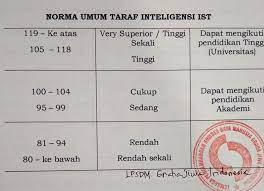 NORMA UMUM TARAF INTELIGENSI IST
119 – Ke atas Very Superior / Tinggi Dapat mengikuti
105 – 118 Sekali pendidikan Tinggi
Tinggi (Universitas)
100 – 104 Cukup Dapat mengikuti
95 – 99 Sedang pendidikan
Akademi
81 – 94 Rendah
80 – ke bawah Rendah sekali
LPSDM Graha Jiwa Indonesia